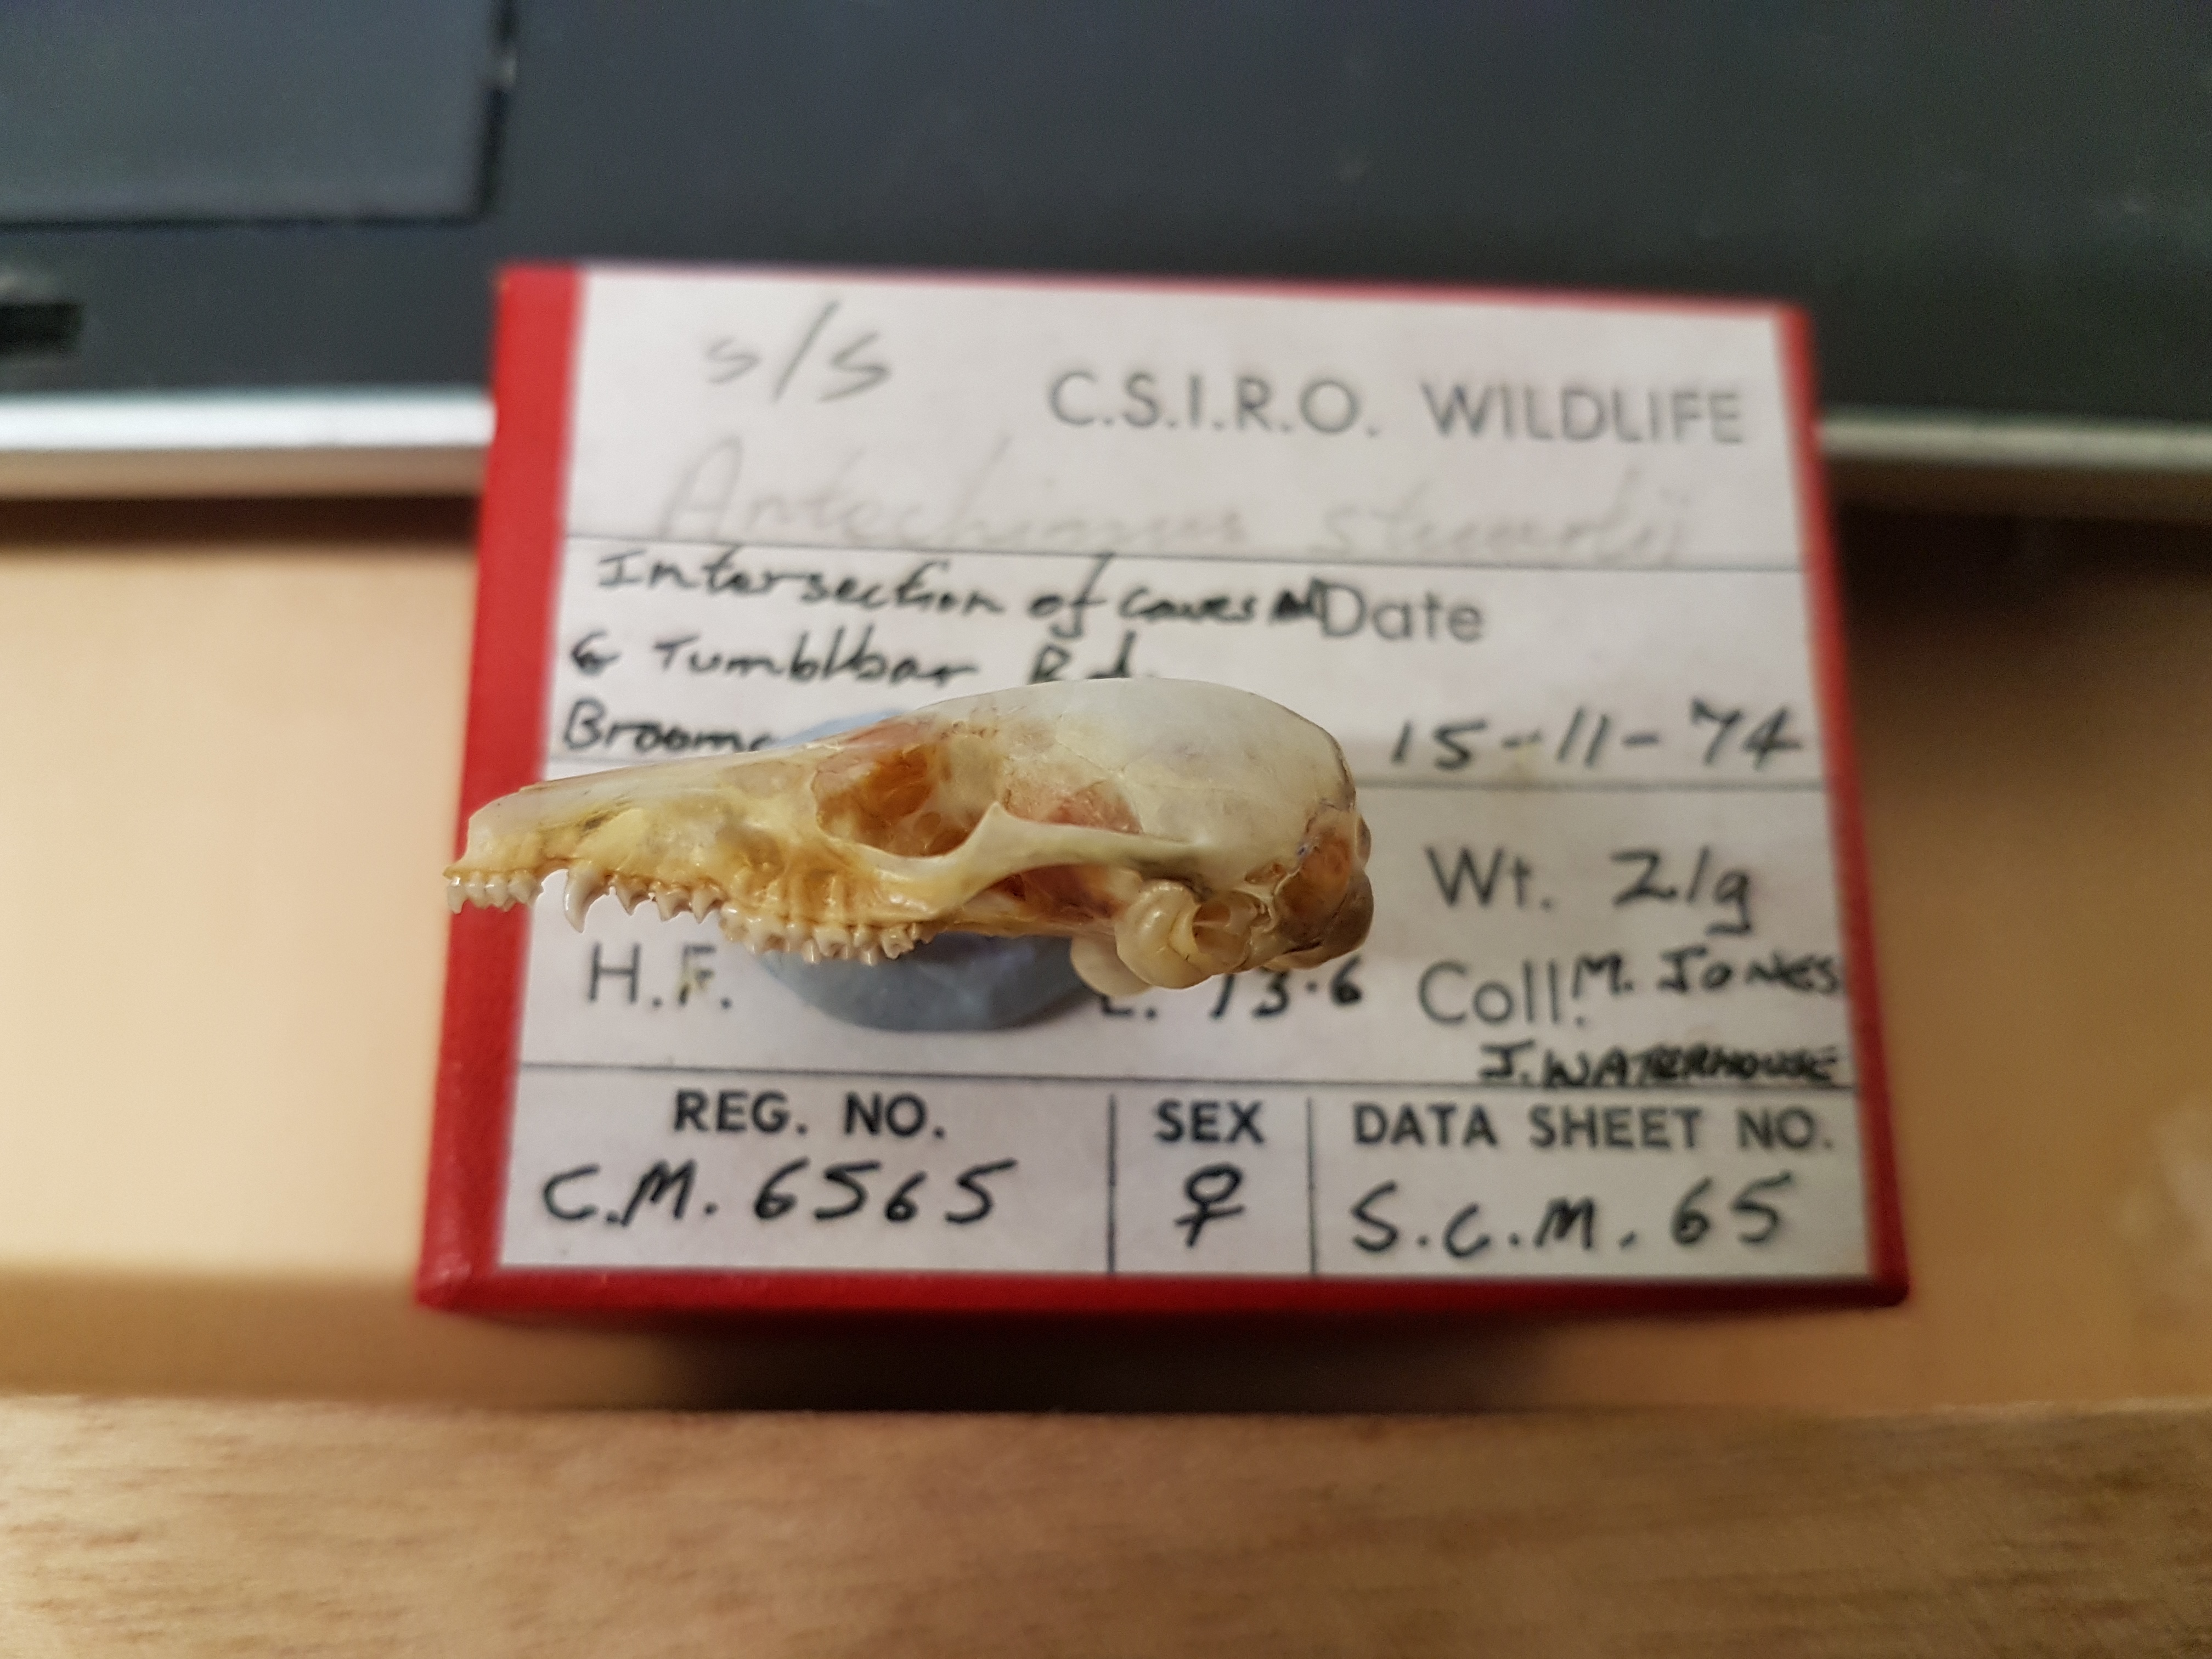 s/s
C.S.I.R.O. WILDLIFE
Antechinus stuartii
Intersection of Caves Date
& Tumblbar Rd.
15-11-74
Wt. 21g
H.F. 13.6 Coll. M. JONES
J. WATERHOUSE
REG. NO. SEX DATA SHEET NO.
C.M. 6565 ♀ S.C.M. 65